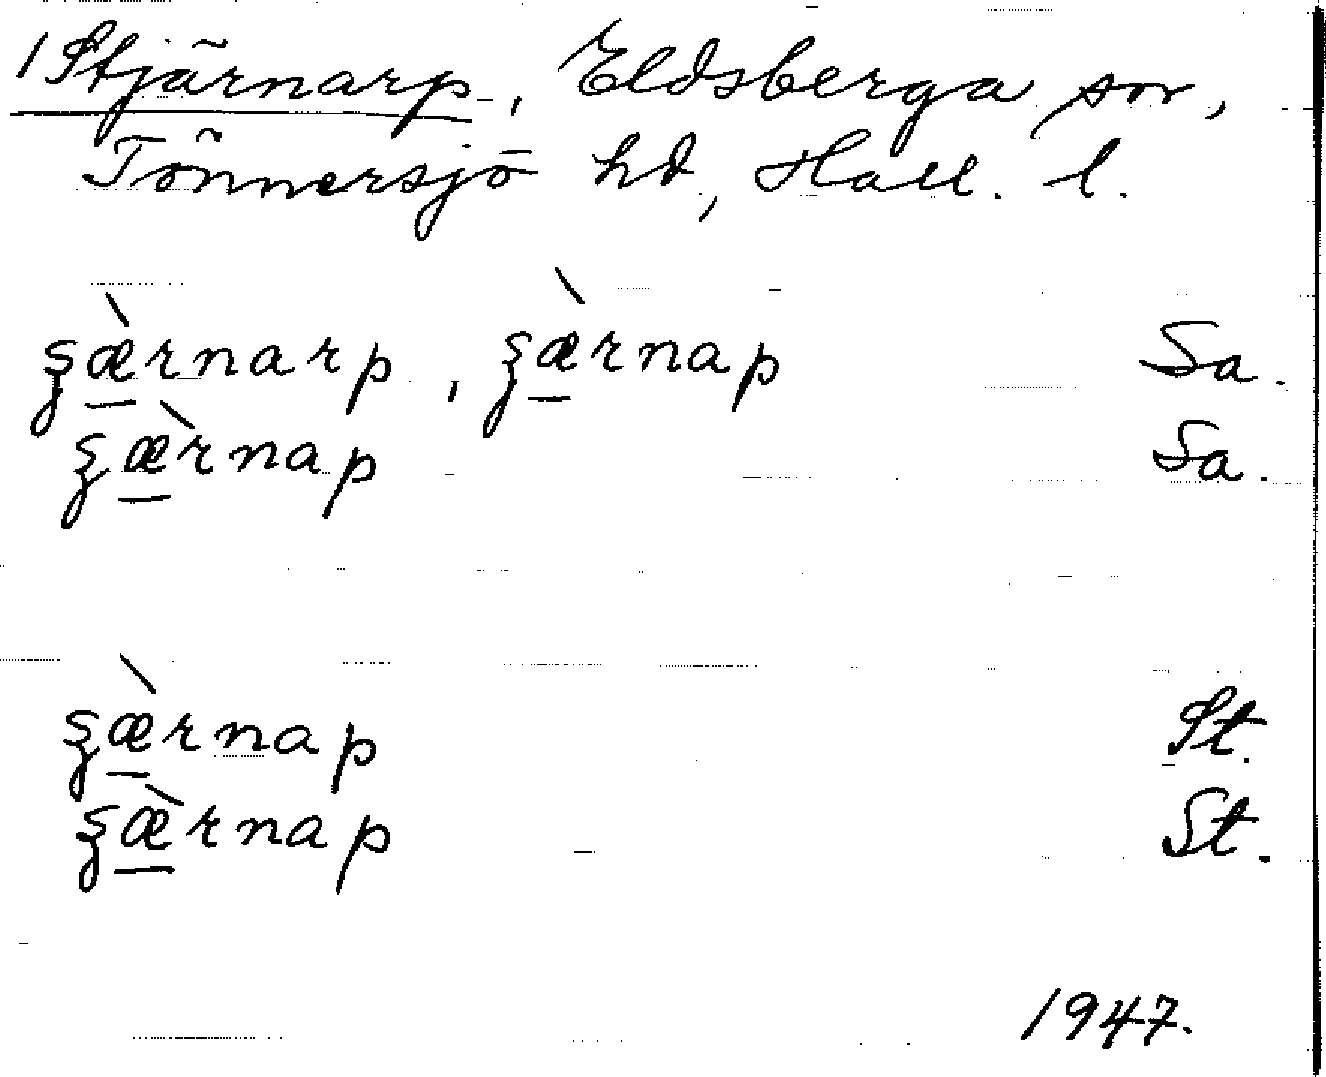 1 Stjärnarp, Eldsberga sn,
Tönnersjö hd, Hall. l.
ʂæ̠̀rnarp, ʂæ̠̀rnap Sa.
ʂæ̠̀rnap Sa.
ʂæ̠̀rnap St.
ʂæ̠̀rnap St.
1947.